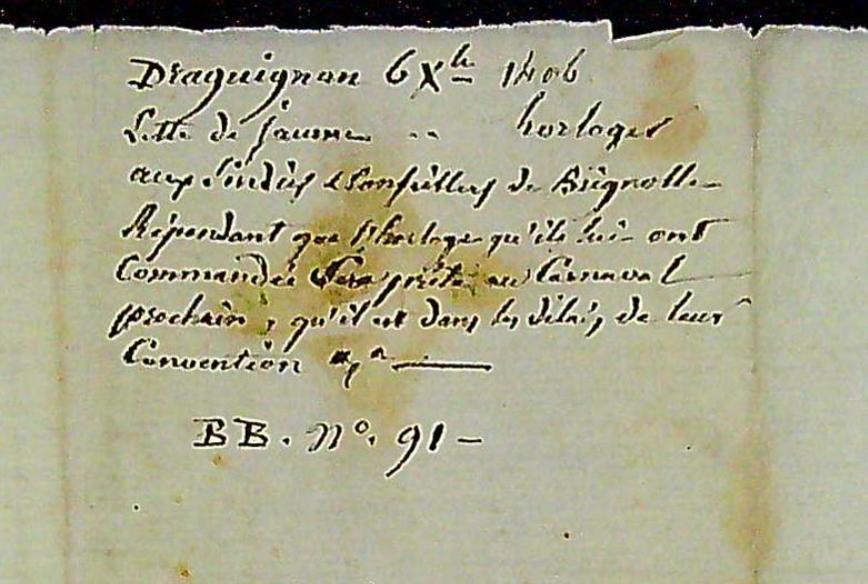 Draguignan 6 Xbre 1406
Lettre de jaume .. horloger
aux Sindics & Conseillers de Brignolle
Répondant que l'horloge qu'ils lui ont
Commandée sera prête au Carnaval
prochain, qu'il est dans les délais de leur
Convention
BB. N°. 91 -